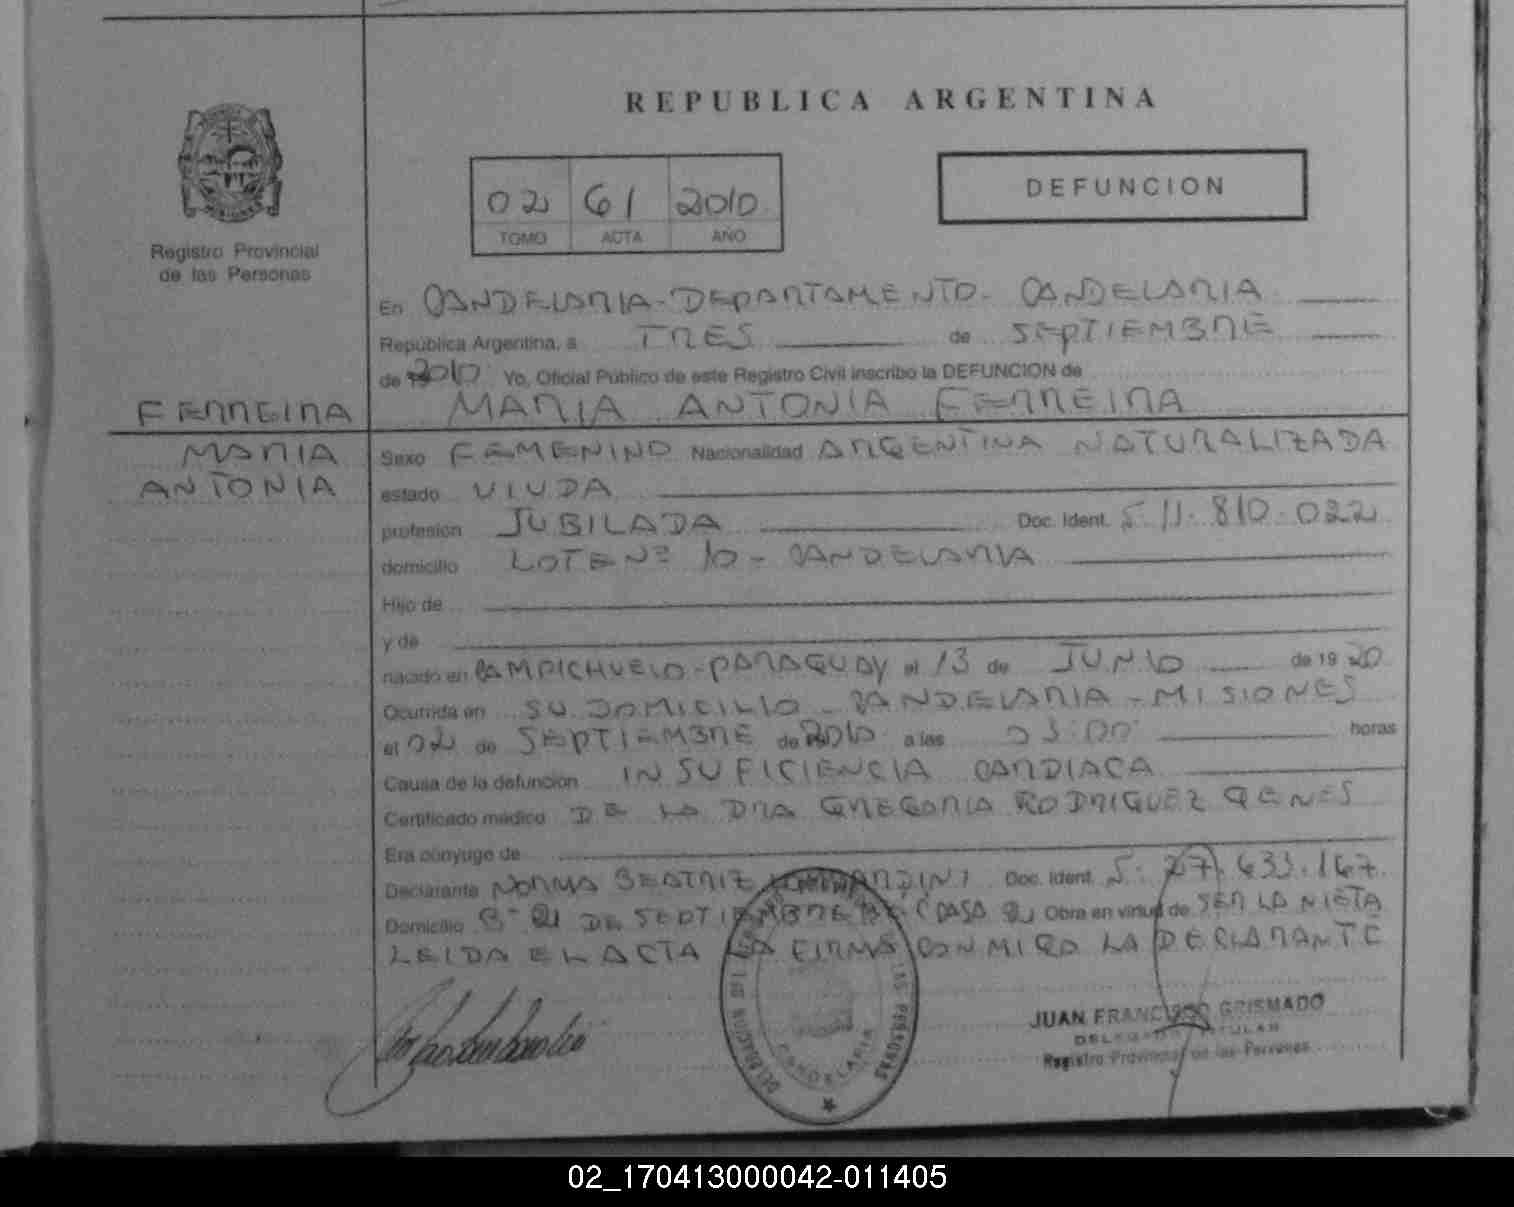 REPUBLICA ARGENTINA
02 61 2010
TOMO ACTA AÑO
DEFUNCION
Registro Provincial
de las Personas
En CANDELARIA - DEPARTAMENTO - CANDELARIA
República Argentina, a TRES de SEPTIEMBRE
de 2010 Yo, Oficial Público de este Registro Civil inscribo la DEFUNCION de
MARIA ANTONIA FERREIRA
FERREIRA
MARIA
ANTONIA
Sexo FEMENINO Nacionalidad ARGENTINA NATURALIZADA
estado VIUDA
profesión JUBILADA Doc. Ident. 5.11.810.022
domicilio LOTE Nº 10 - CANDELARIA
Hijo de
y de
nacido en CAMPICHUELO - PARAGUAY el 13 de JUNIO de 1920
Ocurrida en SU DOMICILIO - CANDELARIA - MISIONES
el 02 de SEPTIEMBRE de 2010 a las 03:00 horas
Causa de la defunción INSUFICIENCIA CARDIACA
Certificado médico DE LA DRA GREGORIA RODRIGUEZ GENES
Era cónyuge de
Declarante NORMA BEATRIZ Doc. Ident. 5. 27.633.167.
Domicilio Bº 21 DE SEPTIEMBRE CASA Obra en virtud de SER LA NIETA
LEIDA EL ACTA LA FIRMA CONMIGO LA DECLARANTE
DELEGACION LAS PERSONAS
CANDELARIA
JUAN FRANCISCO GRISMADO
DELEGADO TITULAR
Registro Provincial de las Personas
02_170413000042-011405